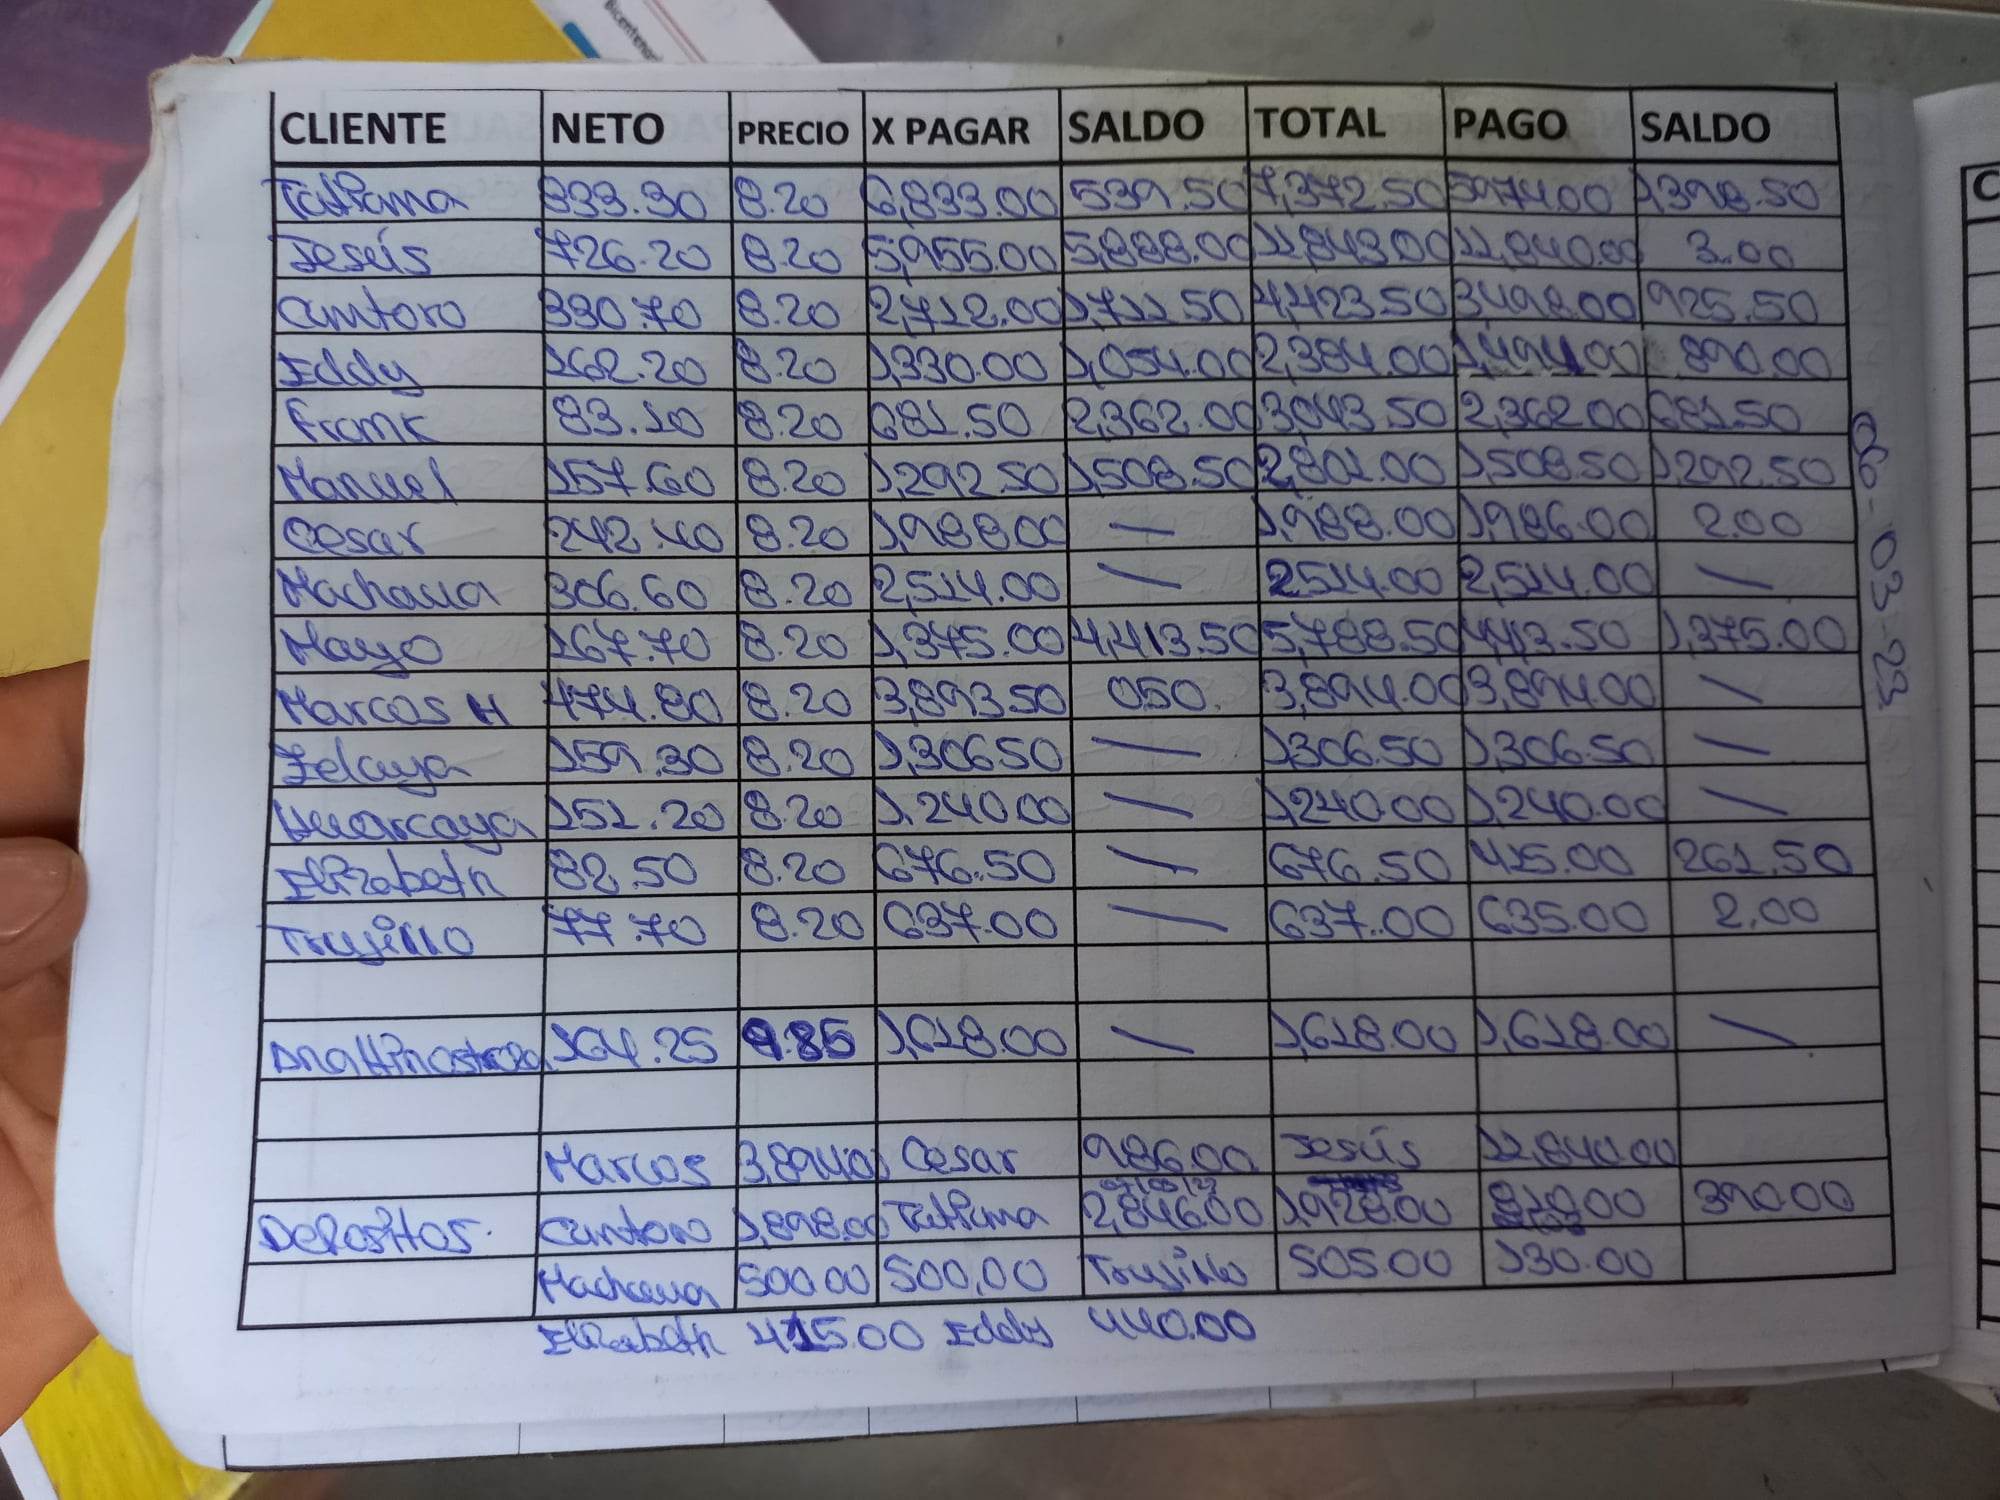 Bicentena
CLIENTE NETO PRECIO X PAGAR SALDO TOTAL PAGO SALDO
C
Tatiana 833.30 8.20 6,833.00 539.50 7,372.50 5974.00 1,398.50
Jesús 726.20 8.20 5,955.00 5,888.00 11,843.00 11,840.00 3.00
Cantoro 330.70 8.20 2,712.00 1,711.50 4,423.50 3498.00 925.50
Eddy 162.20 8.20 1,330.00 1,054.00 2,384.00 1,494.00 890.00
Frank 83.10 8.20 681.50 2,362.00 3,043.50 2,362.00 681.50
Manuel 157.60 8.20 1,292.50 1,508.50 2,801.00 1,508.50 1,292.50
Cesar 242.40 8.20 1,988.00 — 1,988.00 1,986.00 2.00
Machaua 306.60 8.20 2,514.00 — 2514.00 2,514.00 —
Mayo 167.70 8.20 1,375.00 4,413.50 5,788.50 4,413.50 1,375.00
Marcos H 474.80 8.20 3,893.50 0.50. 3,894.00 3,894.00 —
Zelaya 159.30 8.20 1,306.50 — 1,306.50 1,306.50 —
Huarcaya 151.20 8.20 1,240.00 — 1,240.00 1,240.00 —
Elizabeth 82.50 8.20 676.50 — 676.50 415.00 261.50
Trujillo 77.70 8.20 637.00 — 637.00 635.00 2.00
164.25 9.85 1,618.00 — 1,618.00 1,618.00 —
Marcos 3,894.00 Cesar 986.00 Jesús 11,840.00
Depositos. Cantoro 1,898.00 Tatiana 2,846.00 1,928.00 810.00 390.00
Machaua 500.00 500.00 Trujillo 505.00 130.00
Elizabeth 415.00 Eddy 440.00
06-03-23